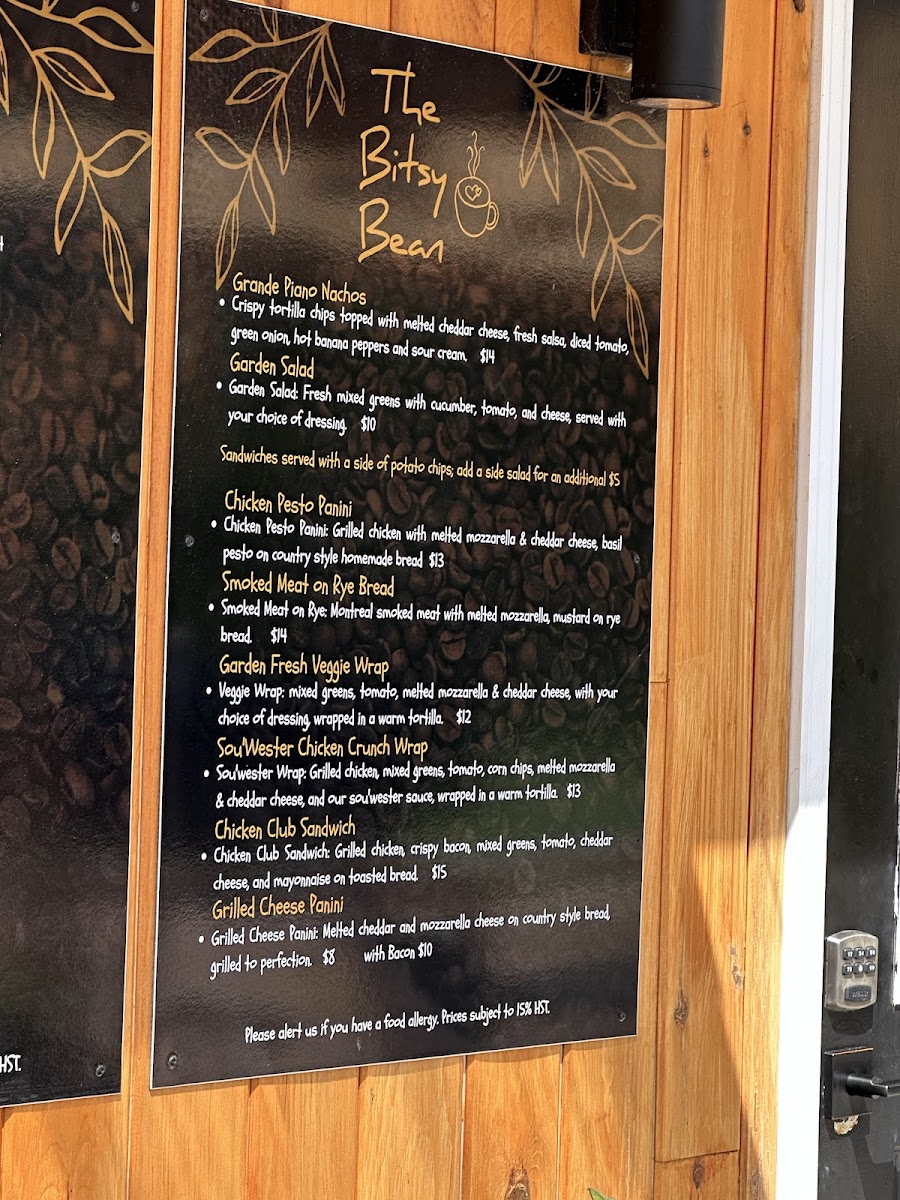 The
Bitsy
Bean
Grande Piano Nachos
• Crispy tortilla chips topped with melted cheddar cheese, fresh salsa, diced tomato,
green onion, hot banana peppers and sour cream. $14
Garden Salad
• Garden Salad: Fresh mixed greens with cucumber, tomato, and cheese, served with
your choice of dressing. $10
Sandwiches served with a side of potato chips; add a side salad for an additional $5
Chicken Pesto Panini
• Chicken Pesto Panini: Grilled chicken with melted mozzarella & cheddar cheese, basil
pesto on country style homemade bread $13
Smoked Meat on Rye Bread
• Smoked Meat on Rye: Montreal smoked meat with melted mozzarella, mustard on rye
bread. $14
Garden Fresh Veggie Wrap
• Veggie Wrap: mixed greens, tomato, melted mozzarella & cheddar cheese, with your
choice of dressing, wrapped in a warm tortilla. $12
Sou'Wester Chicken Crunch Wrap
• Sou'wester Wrap: Grilled chicken, mixed greens, tomato, corn chips, melted mozzarella
& cheddar cheese, and our sou'wester sauce, wrapped in a warm tortilla. $13
Chicken Club Sandwich
• Chicken Club Sandwich: Grilled chicken, crispy bacon, mixed greens, tomato, cheddar
cheese, and mayonnaise on toasted bread $15
Grilled Cheese Panini
• Grilled Cheese Panini: Melted cheddar and mozzarella cheese on country style bread,
grilled to perfection. $8 with Bacon $10
Please alert us if you have a food allergy. Prices subject to 15% HST.
HST.